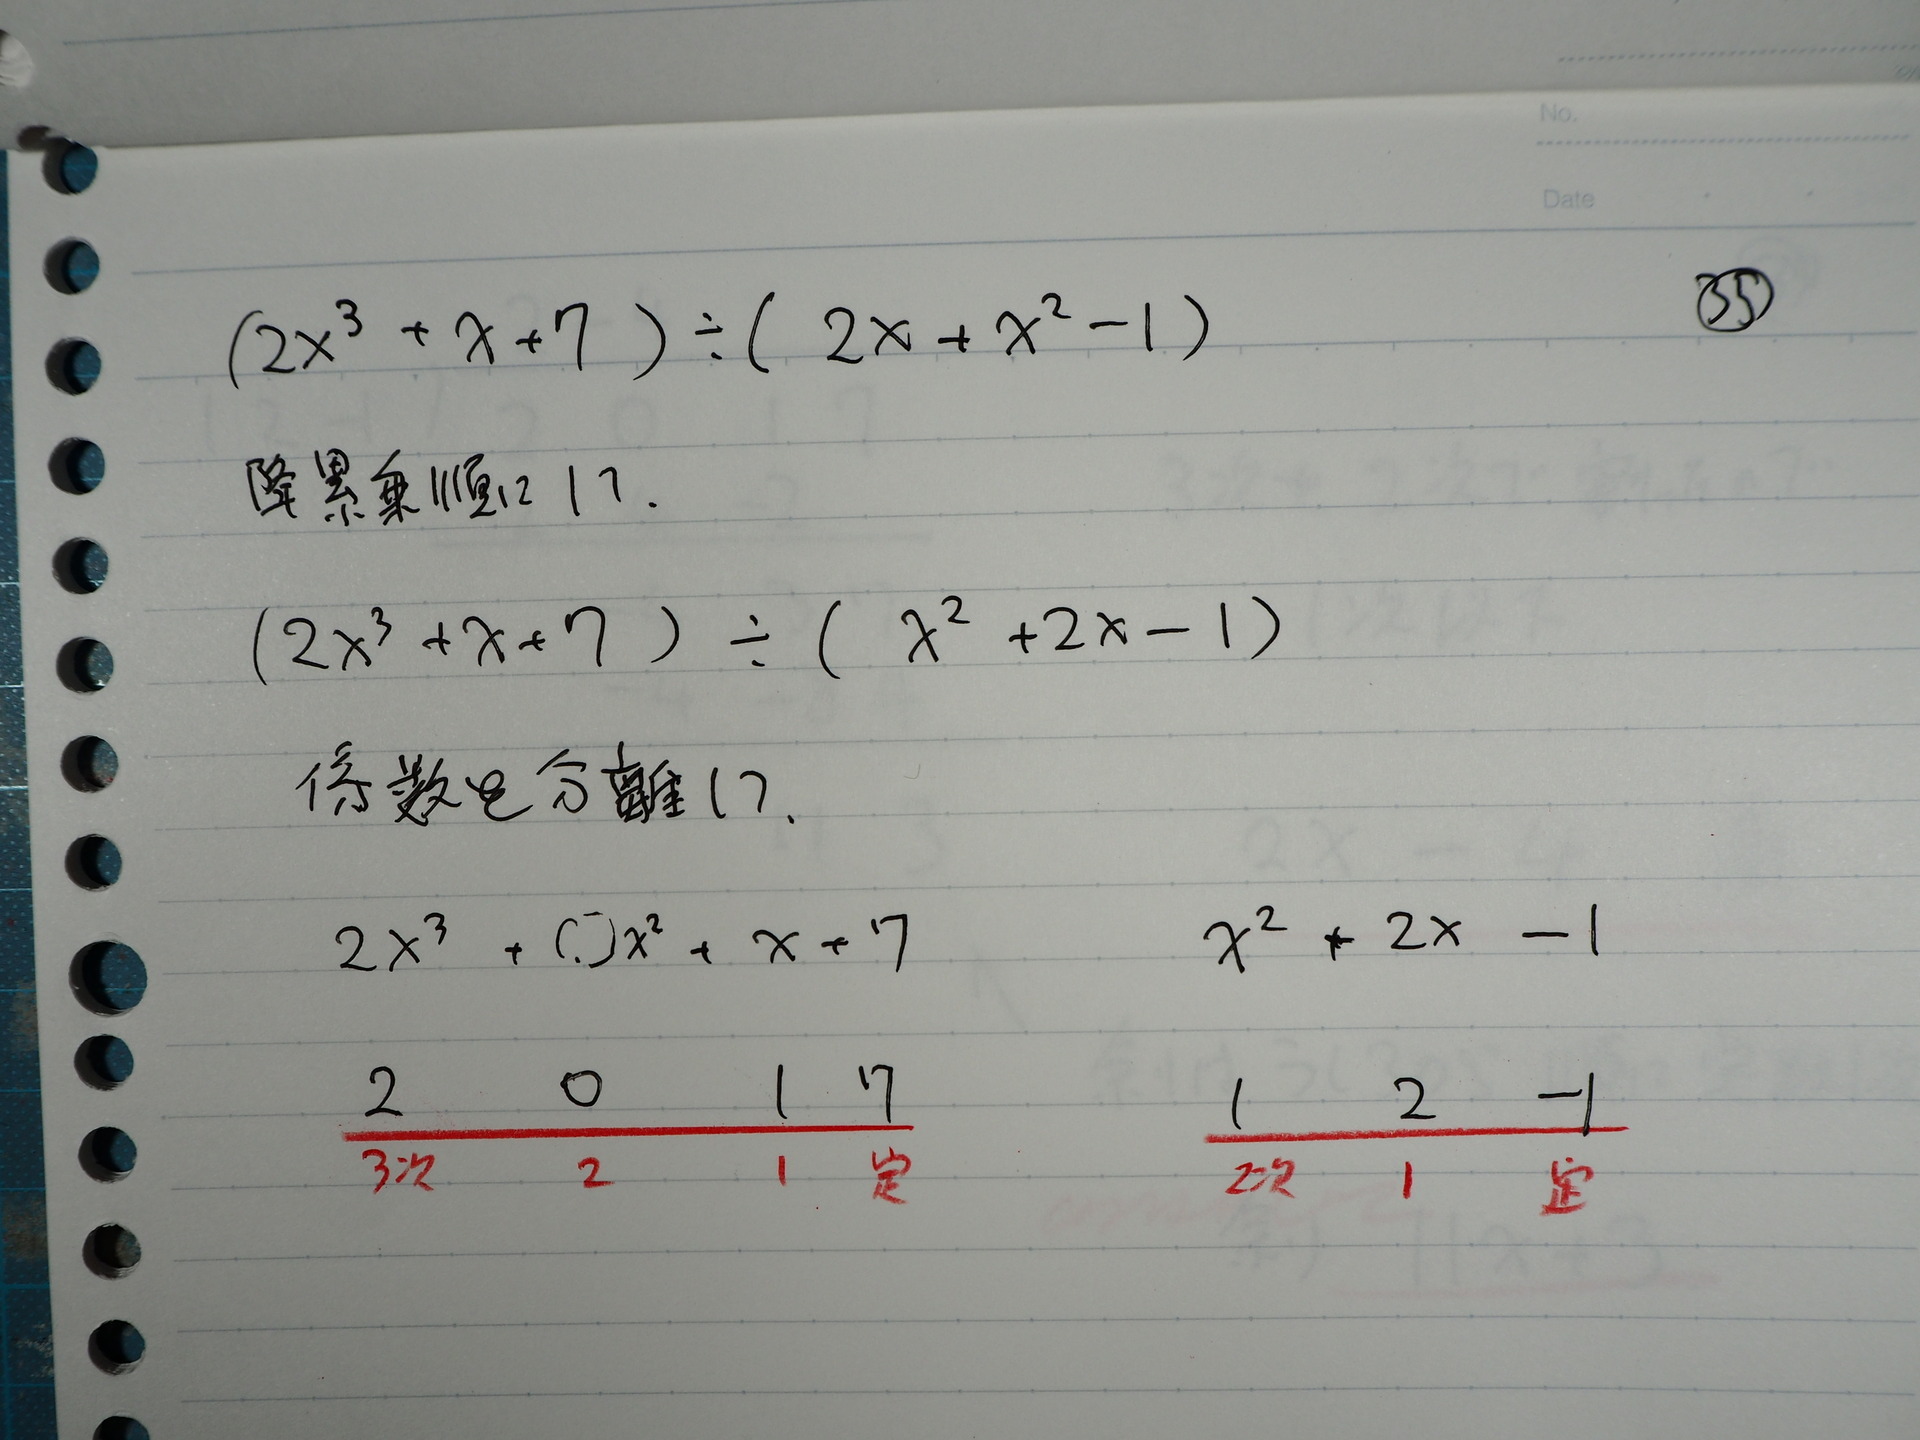 No.
Date
(2x³ + x + 7) ÷ (2x + x² - 1)
㉟
降累乗順にして.
(2x³ + x + 7) ÷ (x² + 2x - 1)
係数を分離して、
2x³ + ( )x² + x + 7 x² + 2x - 1
2 0 1 7 1 2 -1
3次 2 1 定 2次 1 定